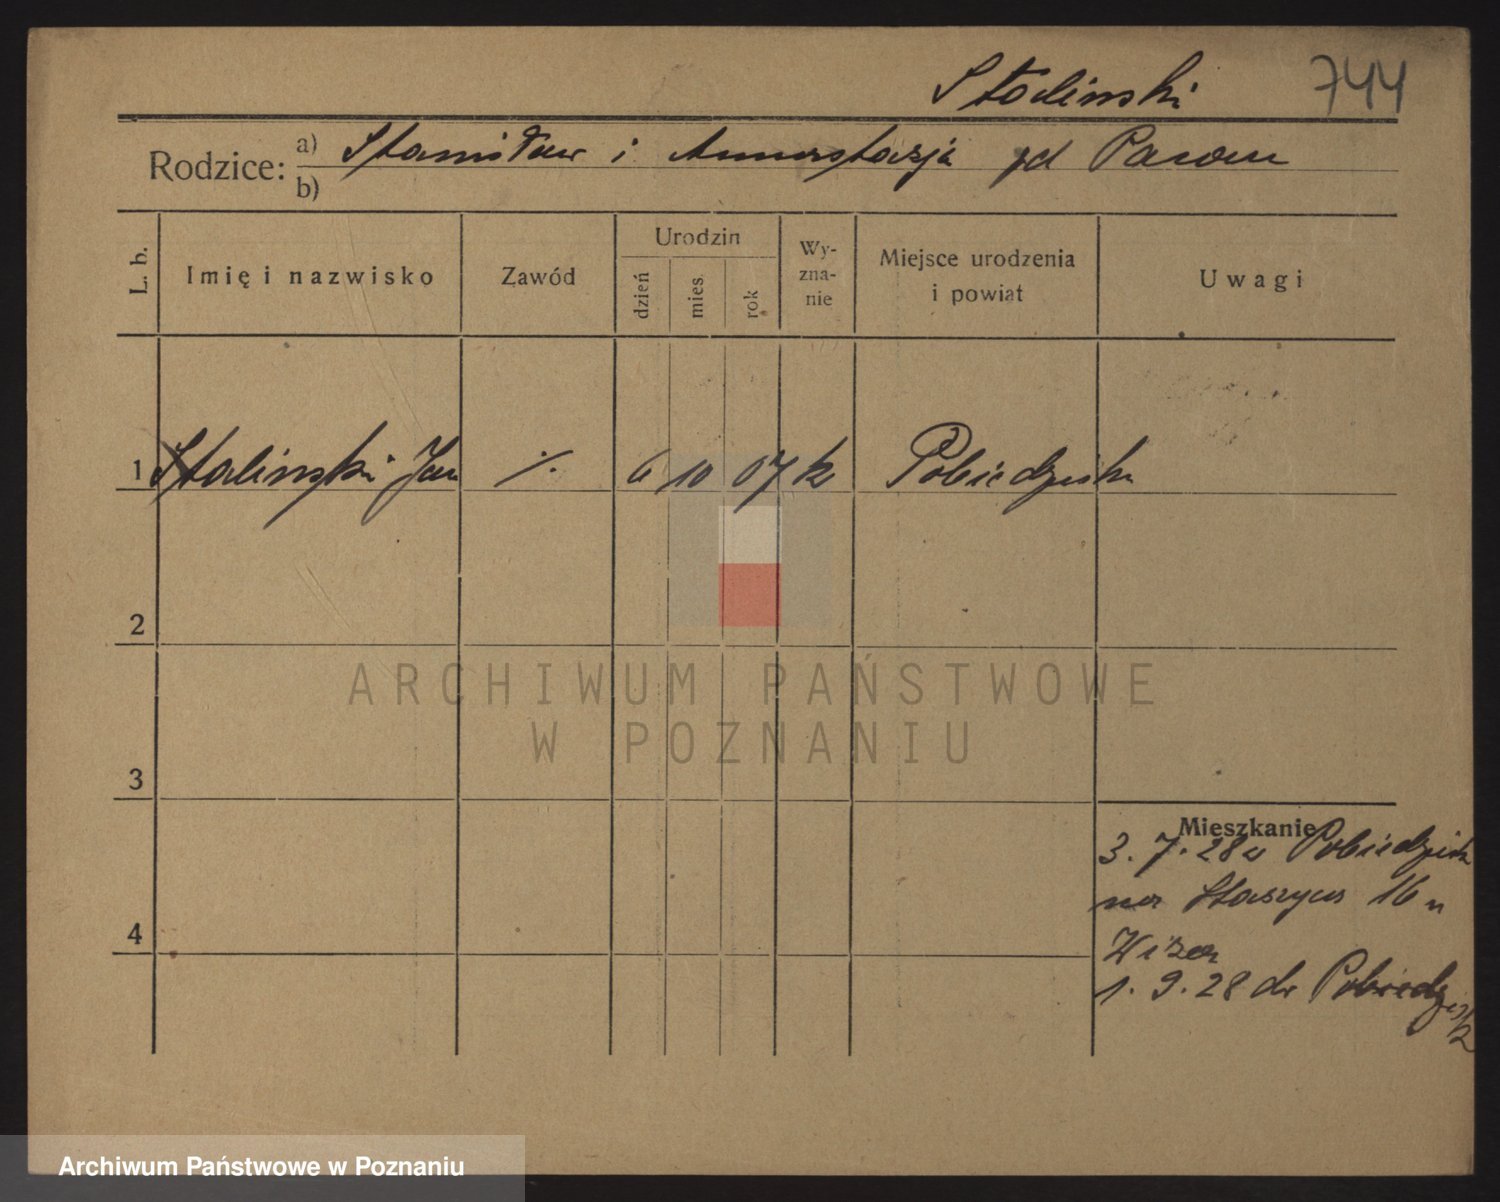 Stalinski 744
Rodzice: a) Stanisław i Anastazja
b)
L. b.
Imię i nazwisko
Zawód
Urodzin
dzień
mies.
rok
Wy-
zna-
nie
Miejsce urodzenia
i powiat
Uwagi
1 Stalinski Jan ./. 6 10 07 k Pobiedziska
2
3
4
Mieszkanie
3. 7. 28 Pobiedzisk
na Staszyca 16
1. 9. 28 do Pobiedzisk
ARCHIWUM PAŃSTWOWE
W POZNANIU
Archiwum Państwowe w Poznaniu